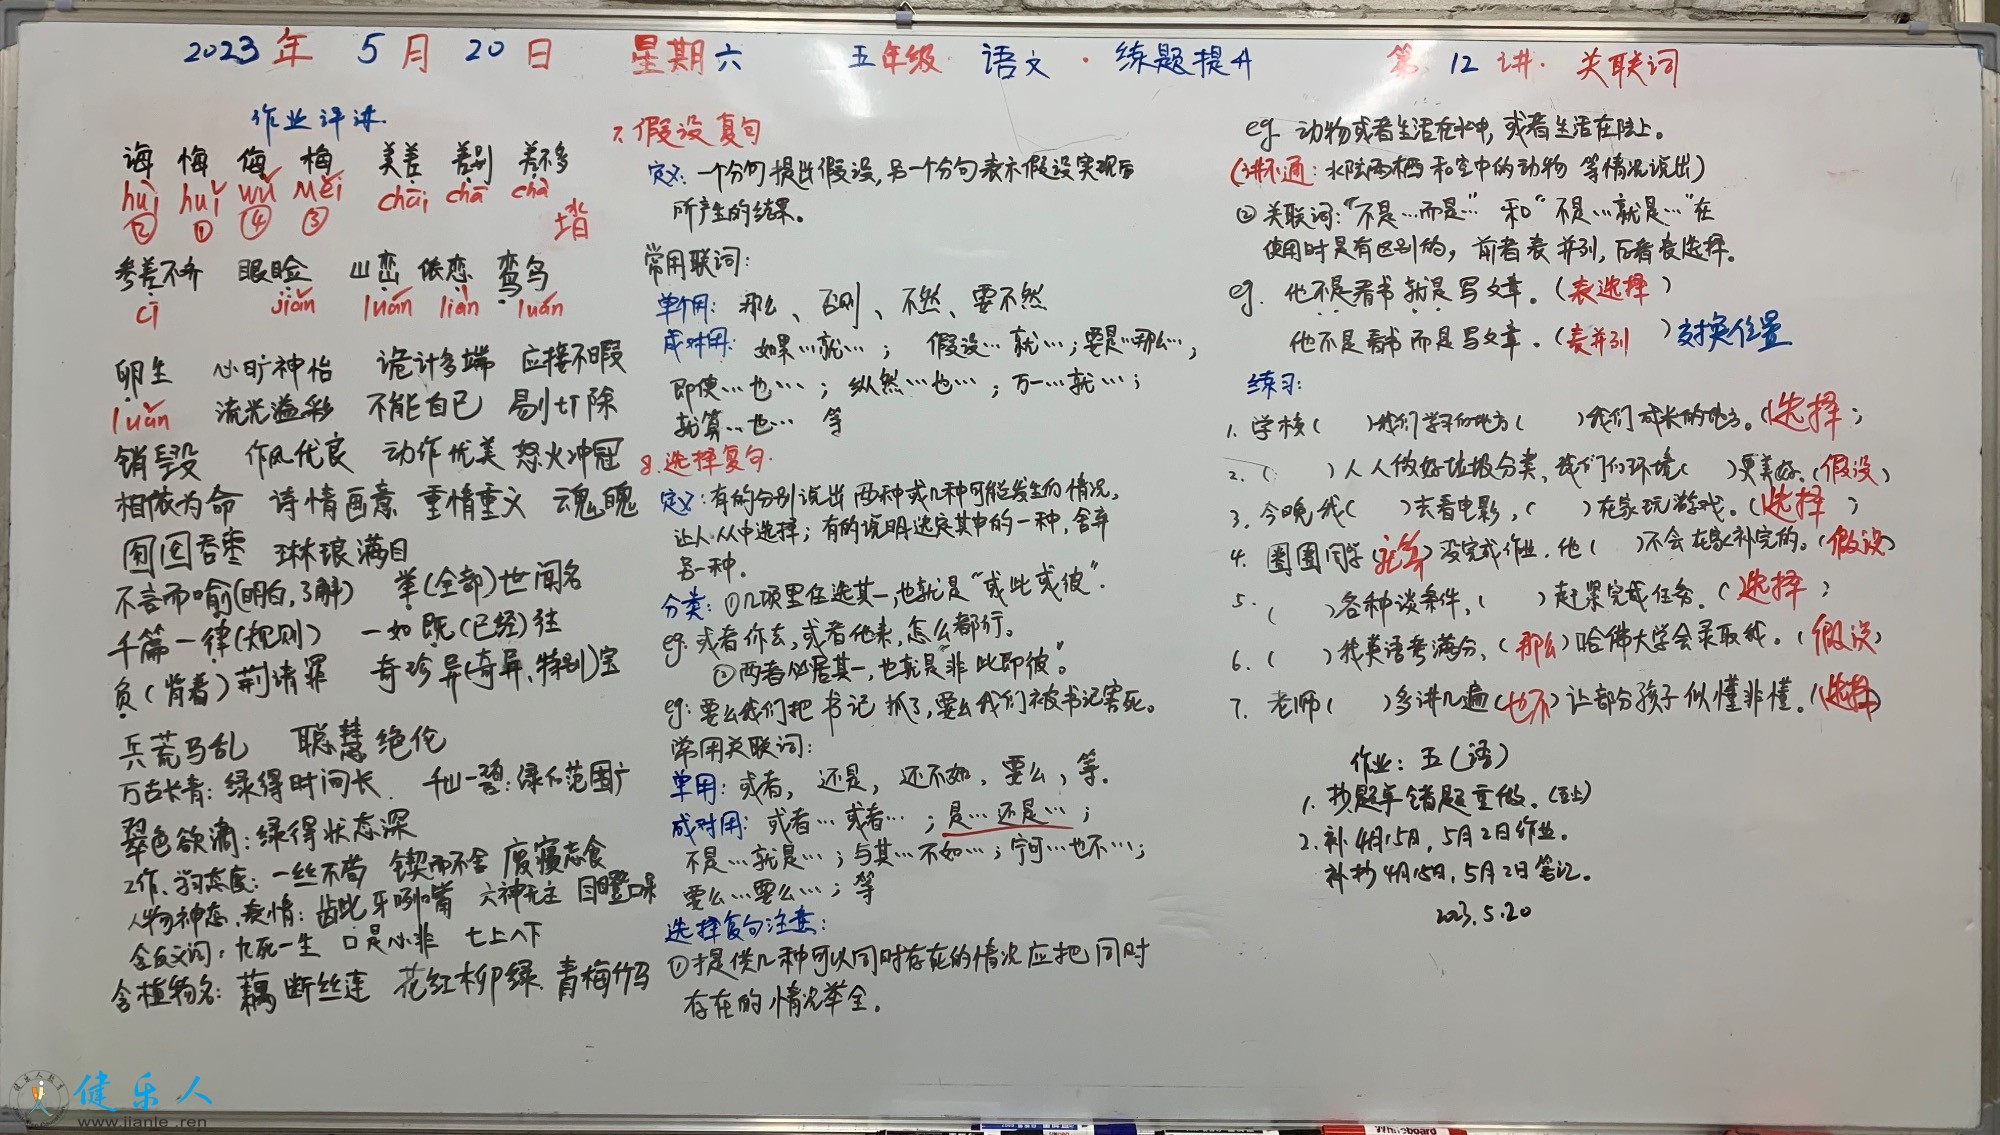 2023年 5月20日 星期六 五年级·语文·练题提A 第12讲·关联词
作业评讲
诲 悔 侮 梅 美差 差别 差不多
huì huǐ wǔ méi chāi chā chà
② ① ④ ③
参差不齐 眼睑 山峦 依恋 鸾鸟
cī jiǎn luán liàn luán
卵生 心旷神怡 诡计多端 应接不暇
luǎn 流光溢彩 不能自已 剔除
销毁 作风优良 动作优美 怒火冲冠
相依为命 诗情画意 重情重义 魂魄
囫囵吞枣 琳琅满目
不言而喻(明白,了解) 举(全部)世闻名
千篇一律(规则) 一如既(已经)往
负(背着)荆请罪 奇珍异(奇异、特别)宝
兵荒马乱 聪慧绝伦
万古长青:绿得时间长 千山一碧:绿得范围广
翠色欲滴:绿得状态深
工作、学习态度:一丝不苟 锲而不舍 废寝忘食
人物神态、表情:龇牙咧嘴 六神无主 目瞪口呆
含反义词:九死一生 口是心非 七上八下
含植物名:藕断丝连 花红柳绿 青梅竹马
7.假设复句
定义:一个分句提出假设,另一个分句表示假设实现后
所产生的结果。
常用联词:
单个用:那么、否则、不然、要不然
成对用:如果…就…;假设…就…;要是…那么…;
即使…也…;纵然…也…;万一…就…;
就算…也… 等
8.选择复句
定义:有的分别说出两种或几种可能发生的情况,
让人从中选择;有的说明选定其中的一种,舍弃
另一种。
分类:①几项里任选其一,也就是“或此或彼”.
eg:或者你去,或者他来,怎么都行。
②两者必居其一,也就是“非此即彼”。
eg:要么我们把书记抓了,要么我们被书记害死。
常用关联词:
单用:或者,还是,还不如,要么,等.
成对用:或者…或者…;是…还是…;
不是…就是…;与其…不如…;宁可…也不…;
要么…要么…;等
选择复句注意:
①提供几种可以同时存在的情况应把同时
存在的情况举全。
eg.动物或者生活在水中,或者生活在陆上。
(讲不通:水陆两栖和空中的动物等情况说出)
②关联词:“不是…而是…”和“不是…就是…”在
使用时是有区别的,前者表并列,后者表选择。
eg.他不是看书就是写文章。(表选择)
他不是看书而是写文章。(表并列)交换位置
练习:
1.学校( )我们学习的地方( )我们成长的地方。(选择)
2.( )人人做好垃圾分类,我们的环境( )更美好.(假设)
3.今晚我( )去看电影,( )在家玩游戏。(选择)
4.圈圈同学(就算)没完成作业,他( )不会在家补完的。(假设)
5.( )各种谈条件,( )赶紧完成任务。(选择)
6.( )我英语考满分,(那么)哈佛大学会录取我。(假设)
7.老师( )多讲几遍(也不)让部分孩子似懂非懂。(选择)
作业:五(语)
1.抄题本错题重做。
2.补4月15日,5月2日作业。
补抄4月15日,5月2日笔记。
2023.5.20
健乐人
www.jianle.ren
Whiteboard